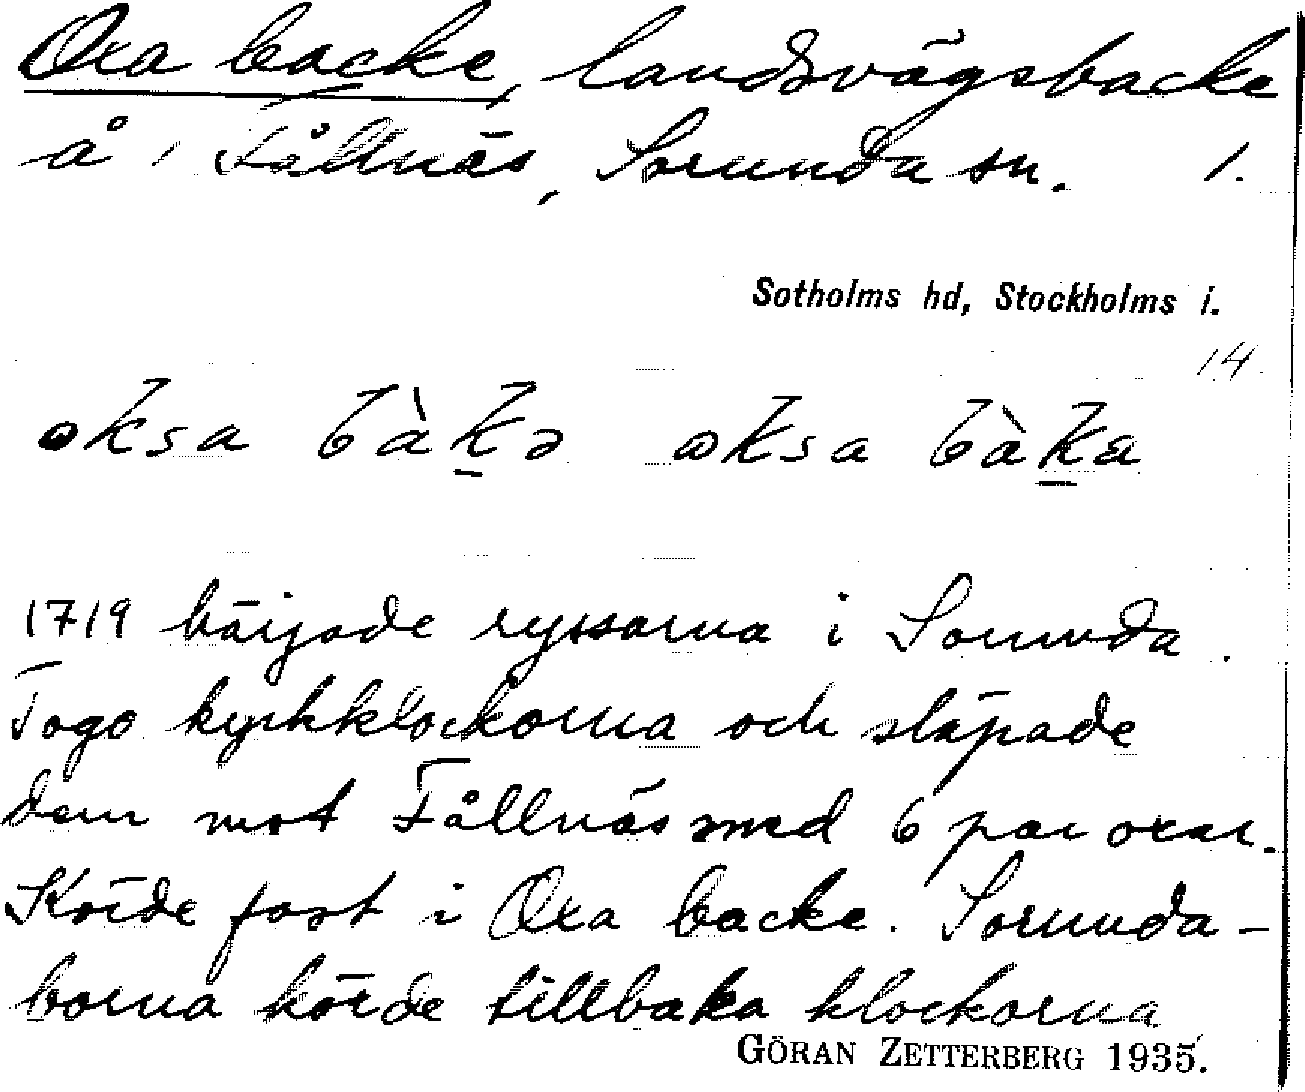 Oxa backe, landsvägsbacke
å Fållnäs, Sorunda sn. 1.
Sotholms hd, Stockholms l.
14
oksa bàkə oksa bàka
1719 härjade ryssarna i Sorunda.
Togo kyrkklockorna och släpade
dem mot Fållnäs med 6 par oxar.
Körde fast i Oxa backe. Sorunda-
borna körde tillbaka klockorna
GÖRAN ZETTERBERG 1935.